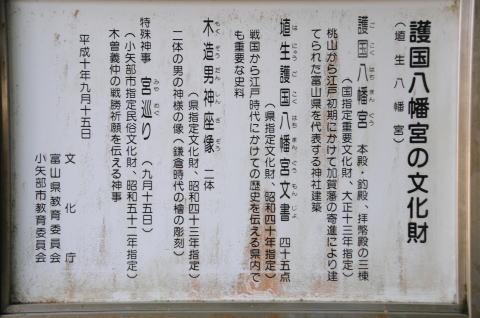 護国八幡宮の文化財
（埴生八幡宮）
護国八幡宮　本殿・釣殿、拝幣殿の三棟
ごこくはちまんぐう
（国指定重要文化財、大正十三年指定）
桃山から江戸初期にかけて加賀藩の寄進により建
てられた富山県を代表する神社建築
埴生護国八幡宮文書　四十五点
はにゅうごこくはちまんぐうもんじょ
（県指定文化財、昭和四十年指定）
戦国から江戸時代にかけての歴史を伝える県内で
も重要な史料
木造男神座像　二体
もくぞうだんしんざぞう
（県指定文化財、昭和四十三年指定）
二体の男の神様の像（鎌倉時代の檜の彫刻）
特殊神事　宮巡り　（九月十五日）
みやめぐ
（小矢部市指定民俗文化財、昭和五十二年指定）
木曽義仲の戦勝祈願を伝える神事
平成十年九月十五日
文化庁
富山県教育委員会
小矢部市教育委員会